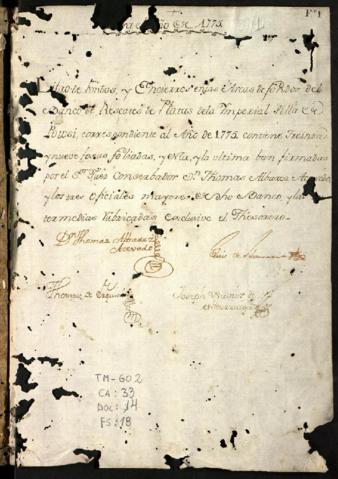 Año de 1775
Libro de Tanteos, y Encierres en las Arcas de fondos del
Banco de Rescates de Platas de la Imperial Villa de
Potosi, correspondiente al Año de 1775 contiene Treinta
y nueve foxas foliadas, y esta, y la ultima bien firmadas
por el Sr. Juez Conserbador Dn. Thomas Albarez Acevedo
y los tres oficiales mayores de dho Banco y las
intermedias rubricadas exclusive el Thesorero
Dn. Thomas Alvarez de
Acevedo
Luis de
Thomas de
Joseph
TM-602
CA: 33
DOC: 14
FS: 18